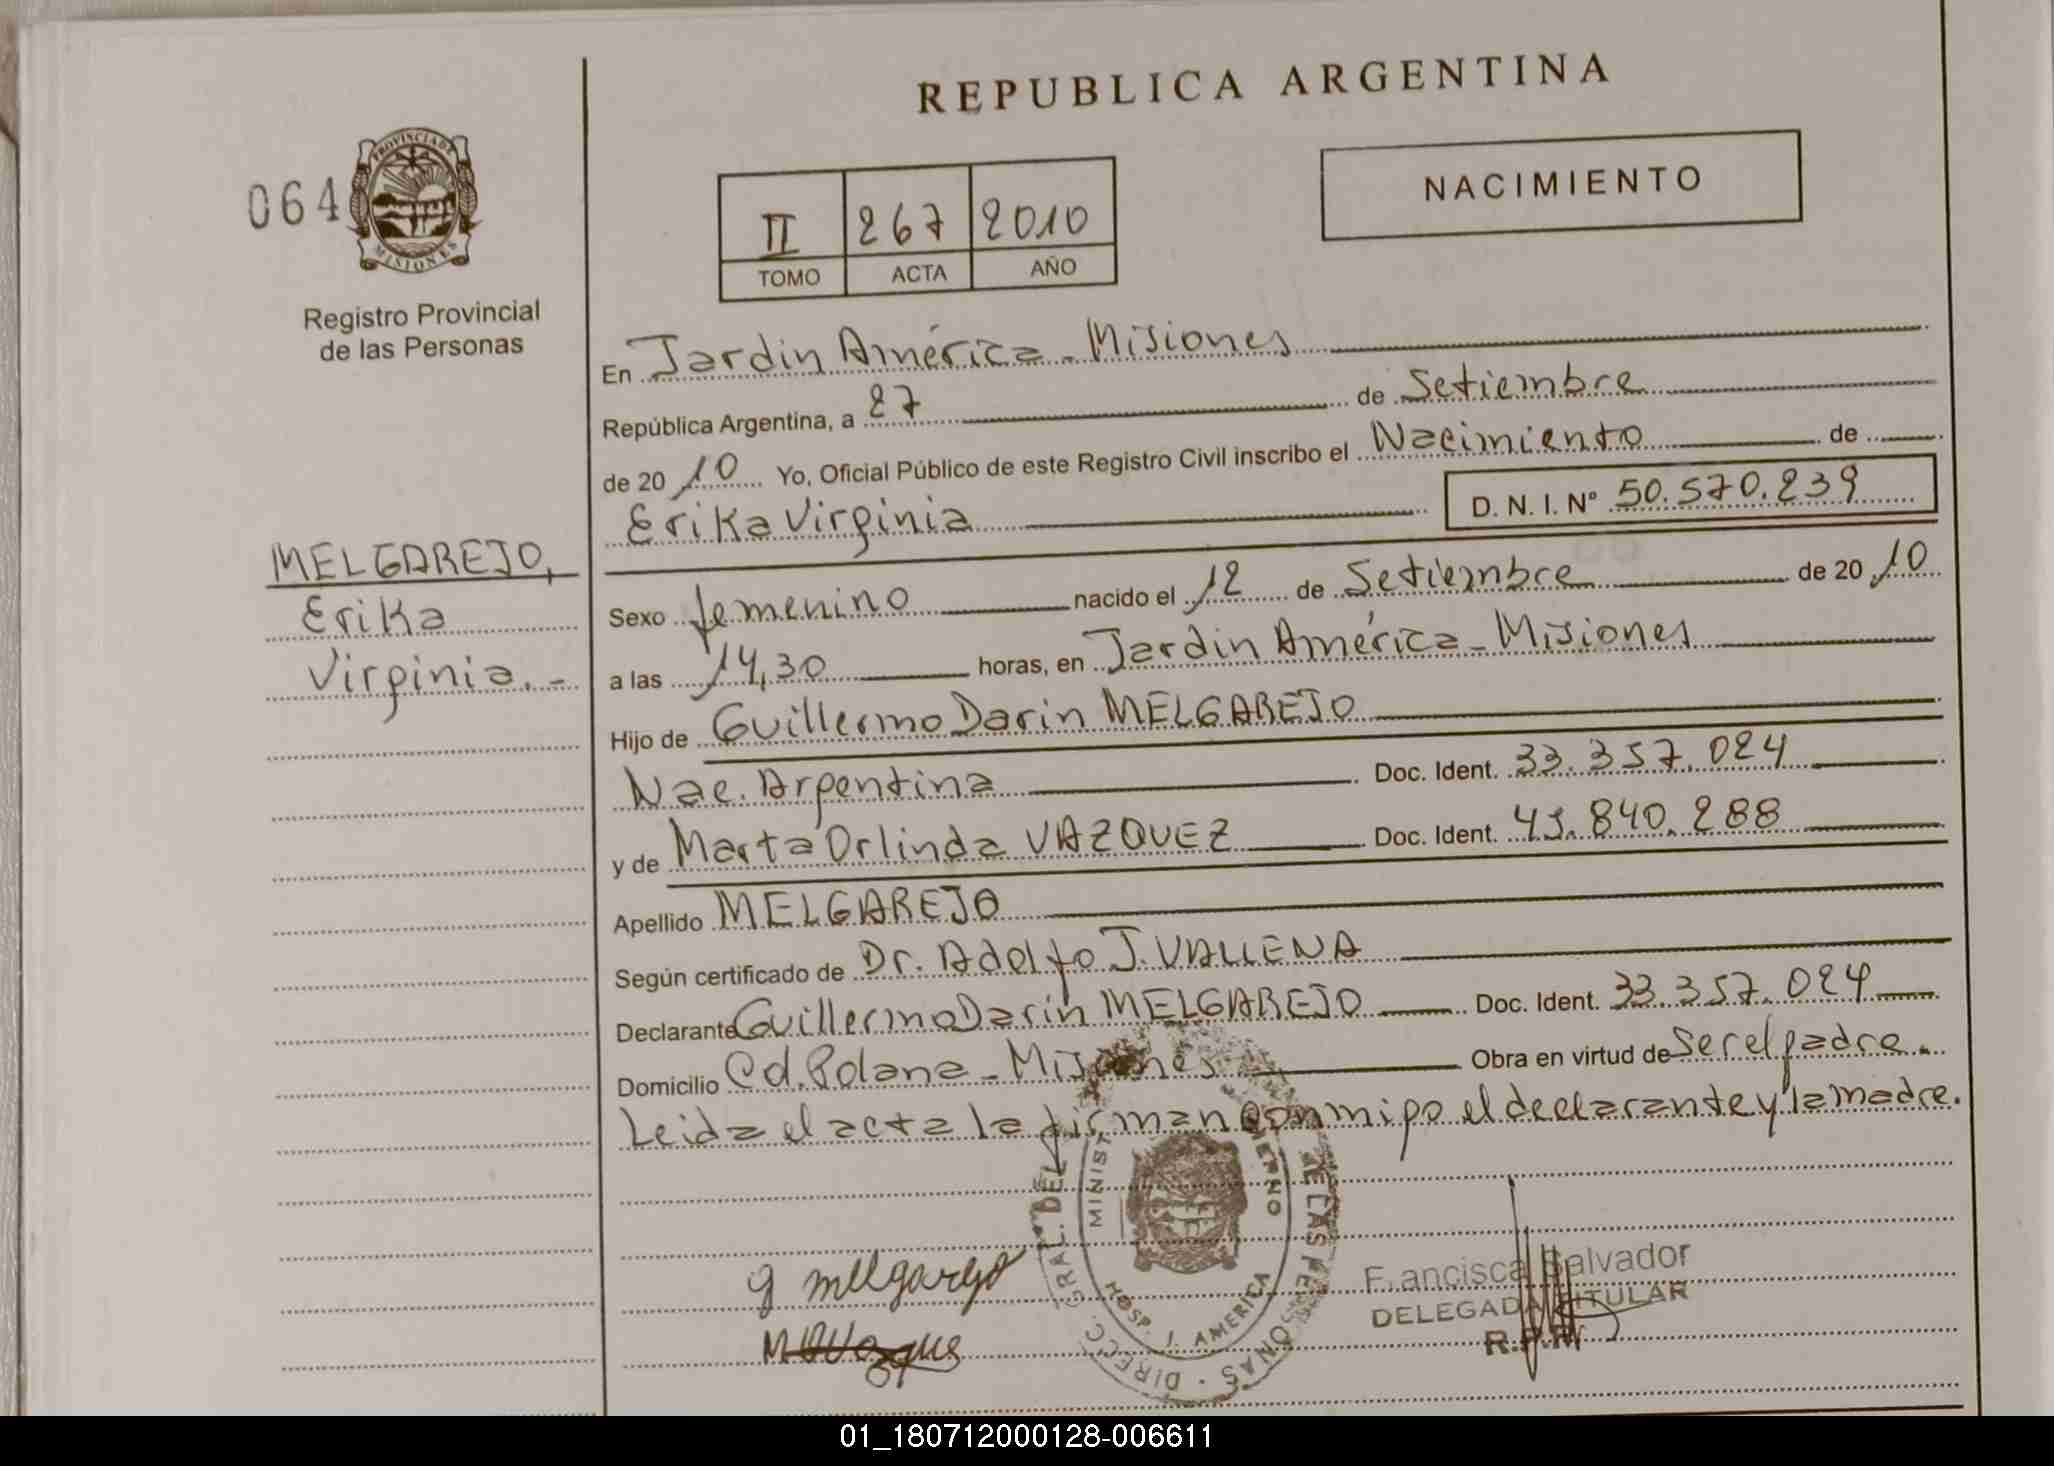 REPUBLICA ARGENTINA
064
PROVINCIA DE
MISIONES
Registro Provincial
de las Personas
NACIMIENTO
II 267 2010
TOMO ACTA AÑO
En Jardin América - Misiones
República Argentina, a 27 de Setiembre
de 2010 Yo, Oficial Público de este Registro Civil inscribo el Nacimiento de
Erika Virginia D. N. I. Nº 50.570.239
MELGAREJO,
Erika
Virginia.-
Sexo femenino nacido el 12 de Setiembre de 2010
a las 14,30 horas, en Jardin América - Misiones
Hijo de Guillermo Darin MELGAREJO
Nac. Argentina Doc. Ident. 33.357.024
y de Marta Orlinda VAZQUEZ Doc. Ident. 41.840.288
Apellido MELGAREJO
Según certificado de Dr. Adolfo J. VALLENA
Declarante Guillermo Darin MELGAREJO Doc. Ident. 33.357.024
Domicilio Cd. Polana - Misiones Obra en virtud de ser el padre.
Leida el acta la firman conmigo el declarante y la madre.
DIRECC. GRAL. DEL DE LAS PERSONAS
MINIST
HOSP. J. AMERICA
g melgarejo
Francisca Salvador
DELEGADA TITULAR
R.P.P.
01_180712000128-006611